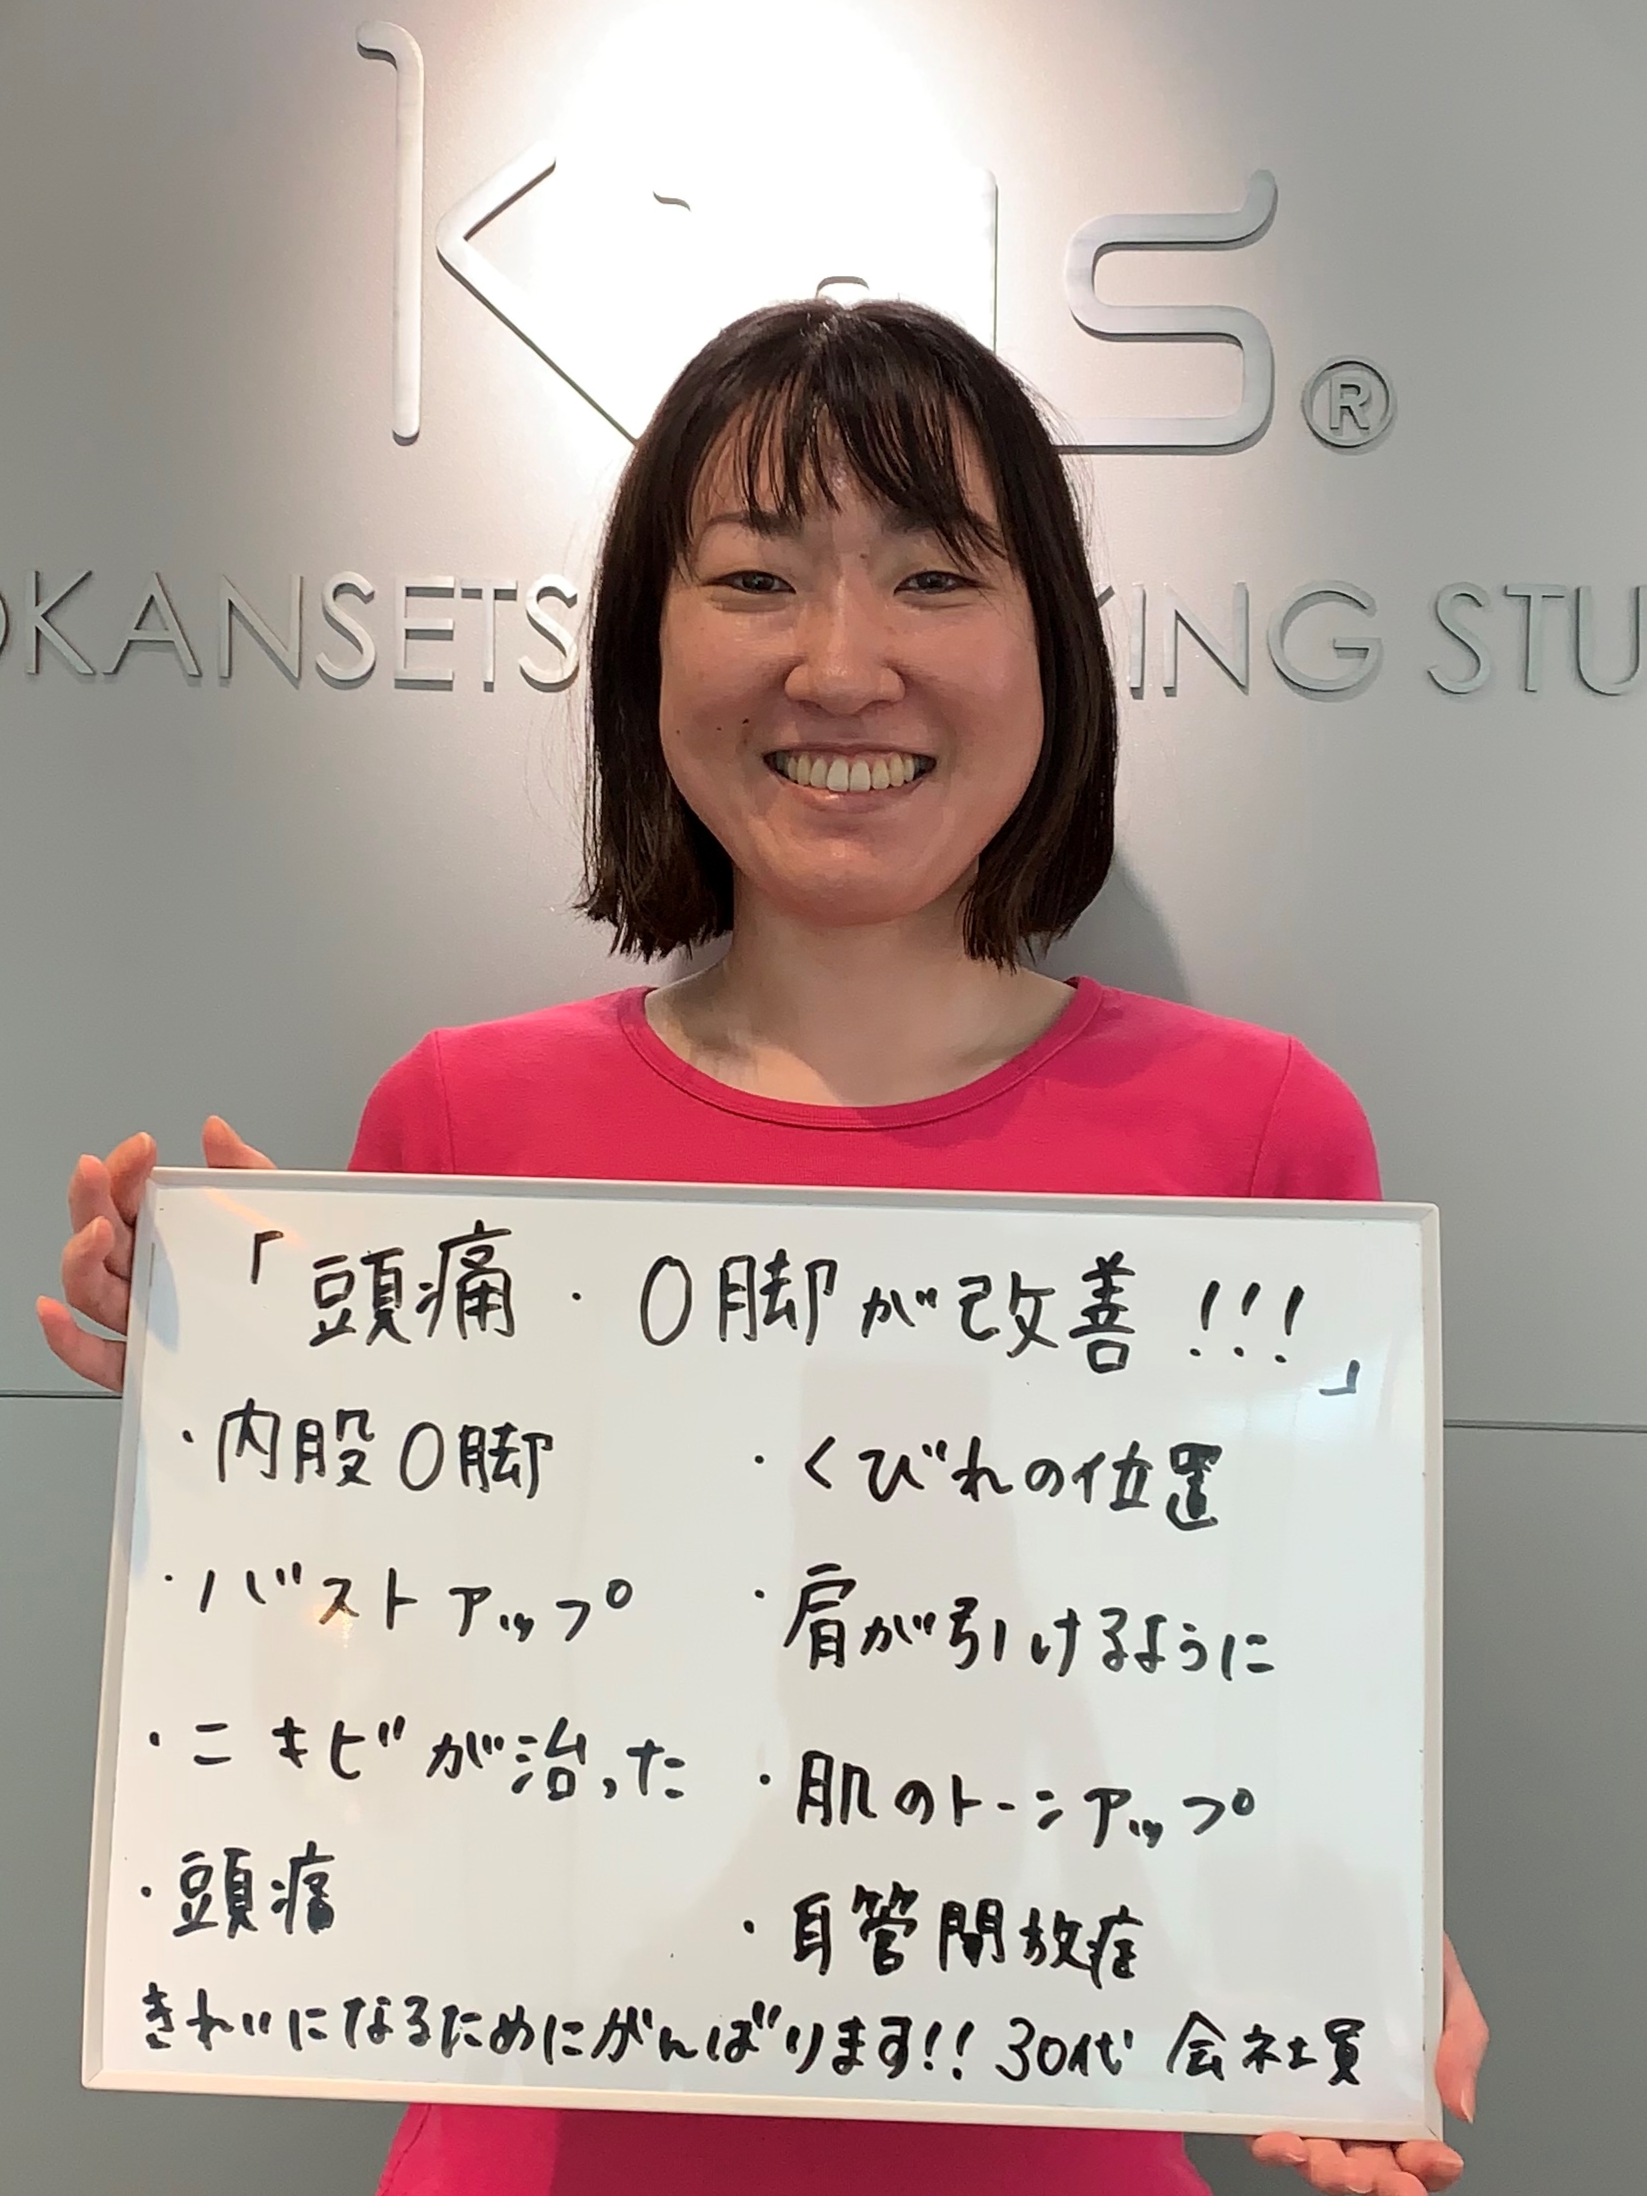 ®
OKANSETS KING STU
「頭痛・O脚が改善!!!」
・内股O脚
・くびれの位置
・バストアップ
・肩が引けるように
・ニキビが治った
・肌のトーンアップ
・頭痛
・耳管開放症
きれいになるためにがんばります!! 30代 会社員